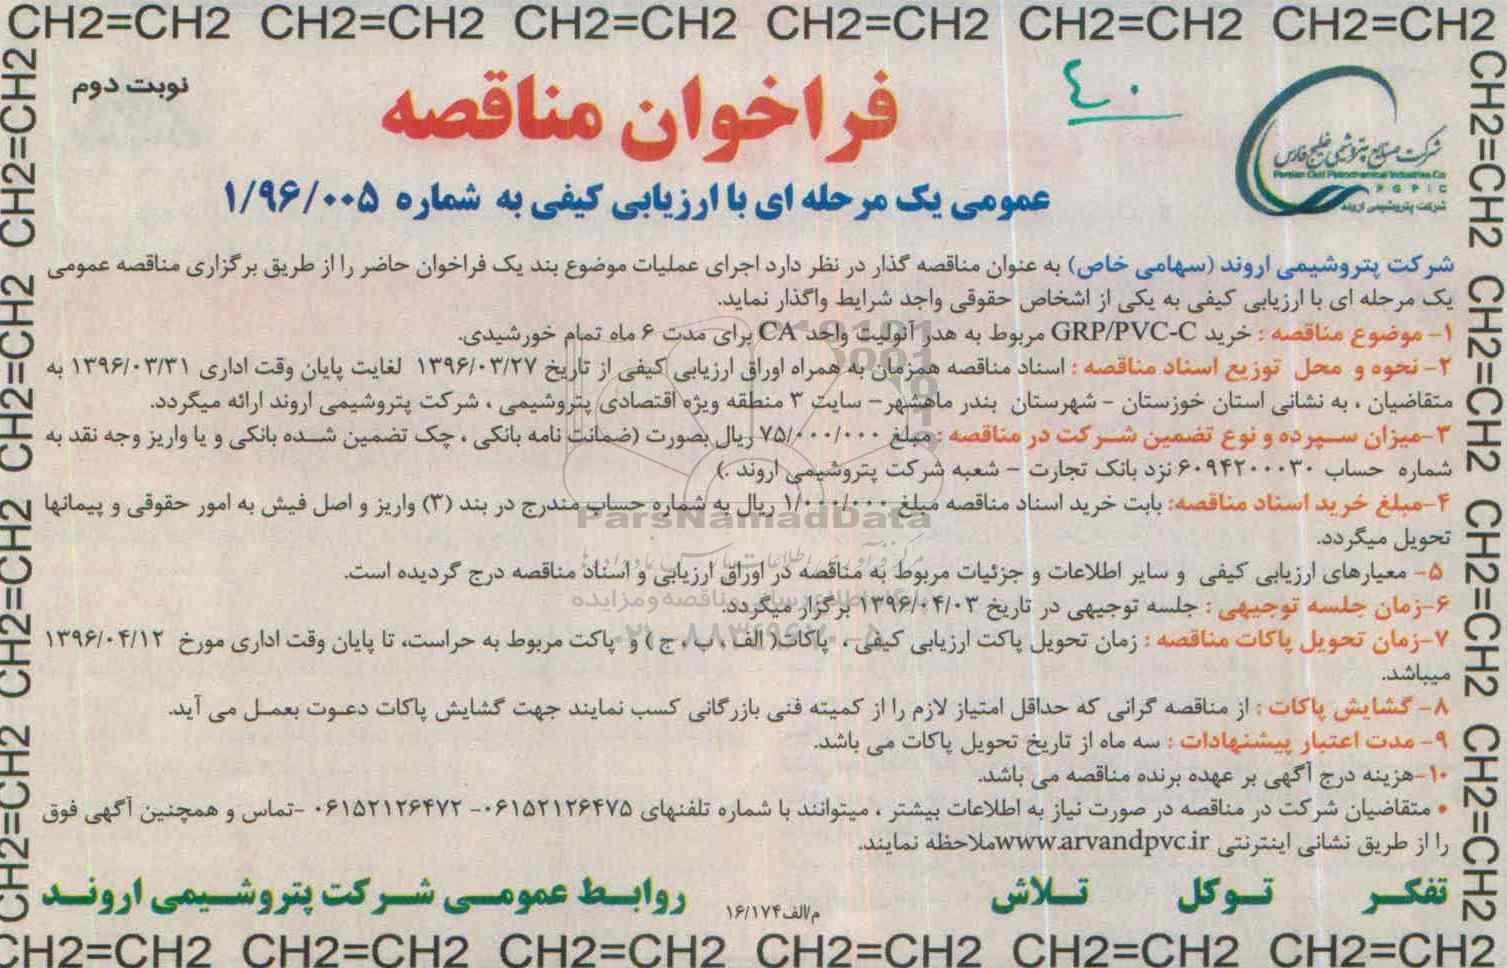 CH2=CH2 CH2=CH2 CH2=CH2 CH2=CH2 CH2=CH2 CH2=CH2
نوبت دوم
۴۰
شرکت صنایع پتروشیمی خلیج فارس
Persian Gulf Petrochemical Industries Co
PGPIC
شرکت پتروشیمی اروند
فراخوان مناقصه
عمومی یک مرحله ای با ارزیابی کیفی به شماره ۱/۹۶/۰۰۵
شرکت پتروشیمی اروند (سهامی خاص) به عنوان مناقصه گذار در نظر دارد اجرای عملیات موضوع بند یک فراخوان حاضر را از طریق برگزاری مناقصه عمومی
یک مرحله ای با ارزیابی کیفی به یکی از اشخاص حقوقی واجد شرایط واگذار نماید.
۱- موضوع مناقصه : خرید GRP/PVC-C مربوط به هدر آنولیت واحد CA برای مدت ۶ ماه تمام خورشیدی.
۲- نحوه و محل توزیع اسناد مناقصه : اسناد مناقصه همزمان به همراه اوراق ارزیابی کیفی از تاریخ ۱۳۹۶/۰۳/۲۷ لغایت پایان وقت اداری ۱۳۹۶/۰۳/۳۱ به
متقاضیان ، به نشانی استان خوزستان - شهرستان بندر ماهشهر- سایت ۳ منطقه ویژه اقتصادی پتروشیمی ، شرکت پتروشیمی اروند ارائه میگردد.
۳-میزان سپرده و نوع تضمین شرکت در مناقصه : مبلغ ۷۵/۰۰۰/۰۰۰ ریال بصورت (ضمانت نامه بانکی ، چک تضمین شده بانکی و یا واریز وجه نقد به
شماره حساب ۶۰۹۴۲۰۰۰۳۰ نزد بانک تجارت - شعبه شرکت پتروشیمی اروند .)
۴-مبلغ خرید اسناد مناقصه: بابت خرید اسناد مناقصه مبلغ ۱/۰۰۰/۰۰۰ ریال به شماره حساب مندرج در بند (۳) واریز و اصل فیش به امور حقوقی و پیمانها
تحویل میگردد.
۵- معیارهای ارزیابی کیفی و سایر اطلاعات و جزئیات مربوط به مناقصه در اوراق ارزیابی و اسناد مناقصه درج گردیده است.
۶-زمان جلسه توجیهی : جلسه توجیهی در تاریخ ۱۳۹۶/۰۴/۰۳ برگزار میگردد.
۷-زمان تحویل پاکات مناقصه : زمان تحویل پاکت ارزیابی کیفی ، پاکات( الف ، ب ، ج ) و پاکت مربوط به حراست، تا پایان وقت اداری مورخ ۱۳۹۶/۰۴/۱۲
میباشد.
۸- گشایش پاکات : از مناقصه گرانی که حداقل امتیاز لازم را از کمیته فنی بازرگانی کسب نمایند جهت گشایش پاکات دعوت بعمل می آید.
۹- مدت اعتبار پیشنهادات : سه ماه از تاریخ تحویل پاکات می باشد.
۱۰-هزینه درج آگهی بر عهده برنده مناقصه می باشد.
• متقاضیان شرکت در مناقصه در صورت نیاز به اطلاعات بیشتر ، میتوانند با شماره تلفنهای ۰۶۱۵۲۱۲۶۴۷۵- ۰۶۱۵۲۱۲۶۴۷۲ -تماس و همچنین آگهی فوق
را از طریق نشانی اینترنتی www.arvandpvc.ir ملاحظه نمایند.
تفکر توکل تلاش
م/الف۱۶/۱۷۴
روابط عمومی شرکت پتروشیمی اروند
CH2=CH2 CH2=CH2 CH2=CH2 CH2=CH2 CH2=CH2 CH2=CH2
CH2=CH2 CH2=CH2 CH2=CH2 CH2=CH2
CH2=CH2 CH2=CH2 CH2=CH2 CH2=CH2
ParsNamadData